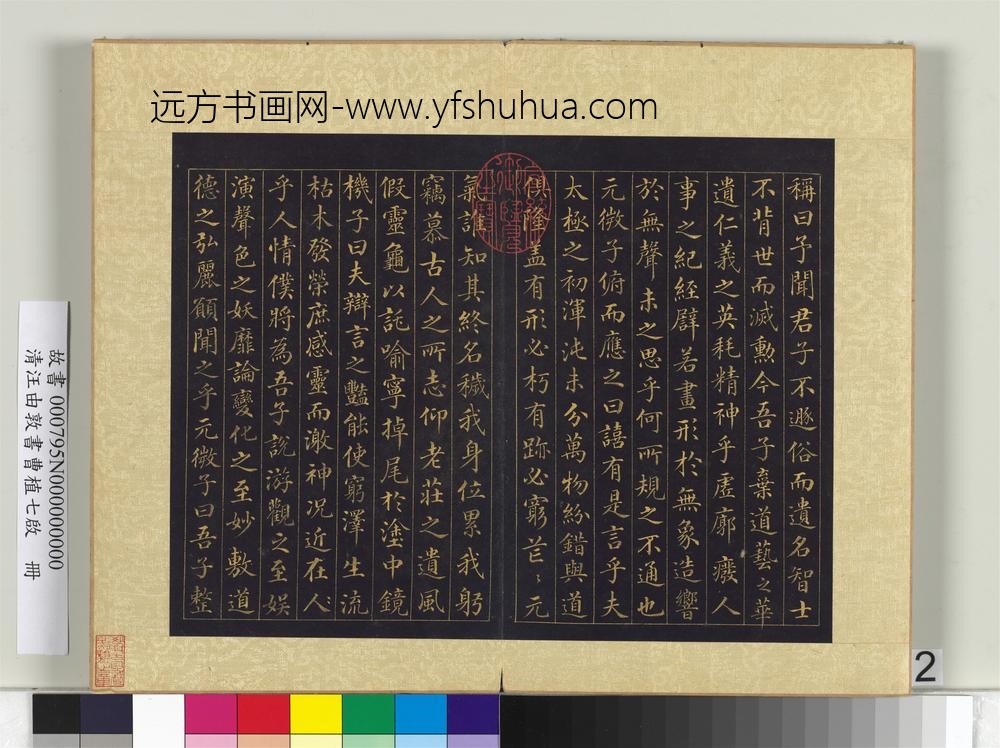 远方书画网-www.yfshuhua.com
稱曰予聞君子不遯俗而遺名智士
不背世而滅勲今吾子棄道藝之華
遺仁義之英耗精神乎虛廓癈人
事之紀經辟若畫形於無象造響
於無聲未之思乎何所規之不通也
元微子俯而應之曰譆有是言乎夫
太極之初渾沌未分萬物紛錯與道
俱隆盖有形必朽有跡必窮芒〻元
氣誰知其終名穢我身位累我躬
竊慕古人之所志仰老莊之遺風
假靈龜以託喻寧掉尾於塗中鏡
機子曰夫辯言之豔能使窮澤生流
枯木發榮庶感靈而激神况近在人
乎人情僕將為吾子説游觀之至娱
演聲色之妖靡論變化之至妙敷道
德之弘麗願聞之乎元微子曰吾子整
故書 000795N000000000
清汪由敦書曹植七啟 冊
2